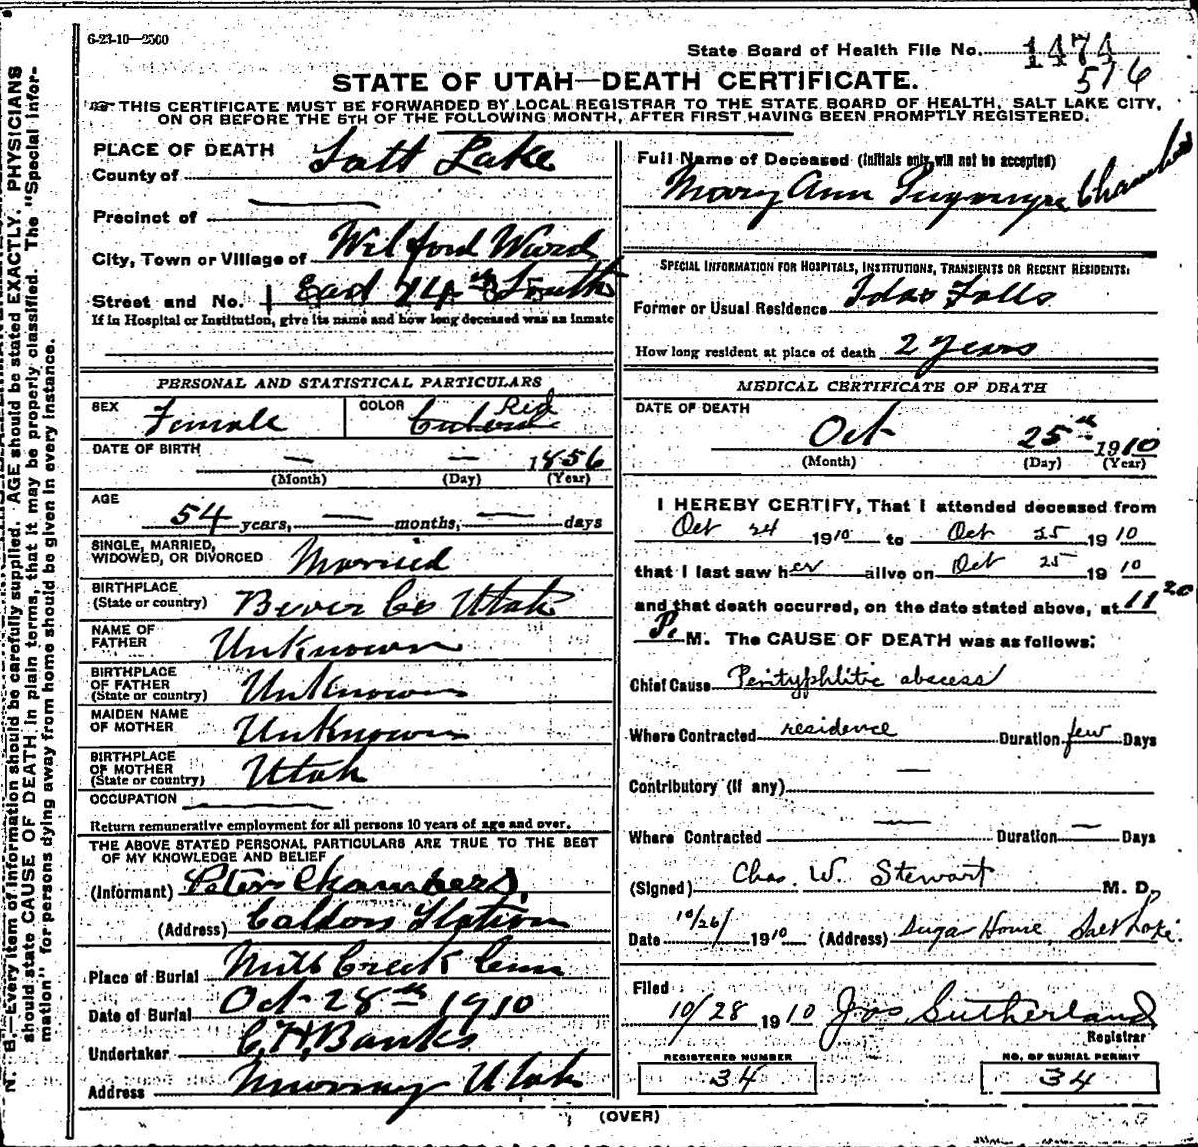 6-23-10—2500
State Board of Health File No. 1474
516
STATE OF UTAH—DEATH CERTIFICATE.
THIS CERTIFICATE MUST BE FORWARDED BY LOCAL REGISTRAR TO THE STATE BOARD OF HEALTH, SALT LAKE CITY,
ON OR BEFORE THE 5TH OF THE FOLLOWING MONTH, AFTER FIRST HAVING BEEN PROMPTLY REGISTERED.
N. B.—Every item of information should be carefully supplied. AGE should be stated EXACTLY. PHYSICIANS
should state CAUSE OF DEATH in plain terms, that it may be properly classified. The "Special Infor-
mation" for persons dying away from home should be given in every instance.
PLACE OF DEATH
County of Salt Lake
Precinct of —
City, Town or Village of Wilford Ward
Street and No. East 14th South
If in Hospital or Institution, give its name and how long deceased was an inmate
PERSONAL AND STATISTICAL PARTICULARS
SEX Female
COLOR Red
DATE OF BIRTH — — 1856
(Month) (Day) (Year)
AGE
54 years, — months, — days
SINGLE, MARRIED,
WIDOWED, OR DIVORCED Married
BIRTHPLACE
(State or country) Bever Co Utah
NAME OF
FATHER Unknown
BIRTHPLACE
OF FATHER
(State or country) Unknown
MAIDEN NAME
OF MOTHER Unknown
BIRTHPLACE
OF MOTHER
(State or country) Utah
OCCUPATION —
Return remunerative employment for all persons 10 years of age and over.
THE ABOVE STATED PERSONAL PARTICULARS ARE TRUE TO THE BEST
OF MY KNOWLEDGE AND BELIEF
(Informant) Peter Chambers
(Address) Station
Place of Burial Mill Creek Cem
Date of Burial Oct 28th 1910
Undertaker C. H. Banks
Address Murray Utah
Full Name of Deceased (initials only will not be accepted)
Mary Ann Chambers
SPECIAL INFORMATION FOR HOSPITALS, INSTITUTIONS, TRANSIENTS OR RECENT RESIDENTS:
Former or Usual Residence Idao Falls
How long resident at place of death 2 years
MEDICAL CERTIFICATE OF DEATH
DATE OF DEATH
Oct 25th 1910
(Month) (Day) (Year)
I HEREBY CERTIFY, That I attended deceased from
Oct 24 1910 to Oct 25 1910
that I last saw her alive on Oct 25 1910
and that death occurred, on the date stated above, at 11 20
P. M. The CAUSE OF DEATH was as follows:
Chief Cause Perityphlitic abscess
Where Contracted residence Duration few Days
Contributory (if any) —
Where Contracted — Duration — Days
(Signed) Chas. W. Stewart M. D.
Date 10/26/ 1910 (Address) Sugar House, Salt Lake.
Filed
10/28 1910 Jos Sutherland
Registrar
REGISTERED NUMBER
34
NO. OF BURIAL PERMIT
34
(OVER)